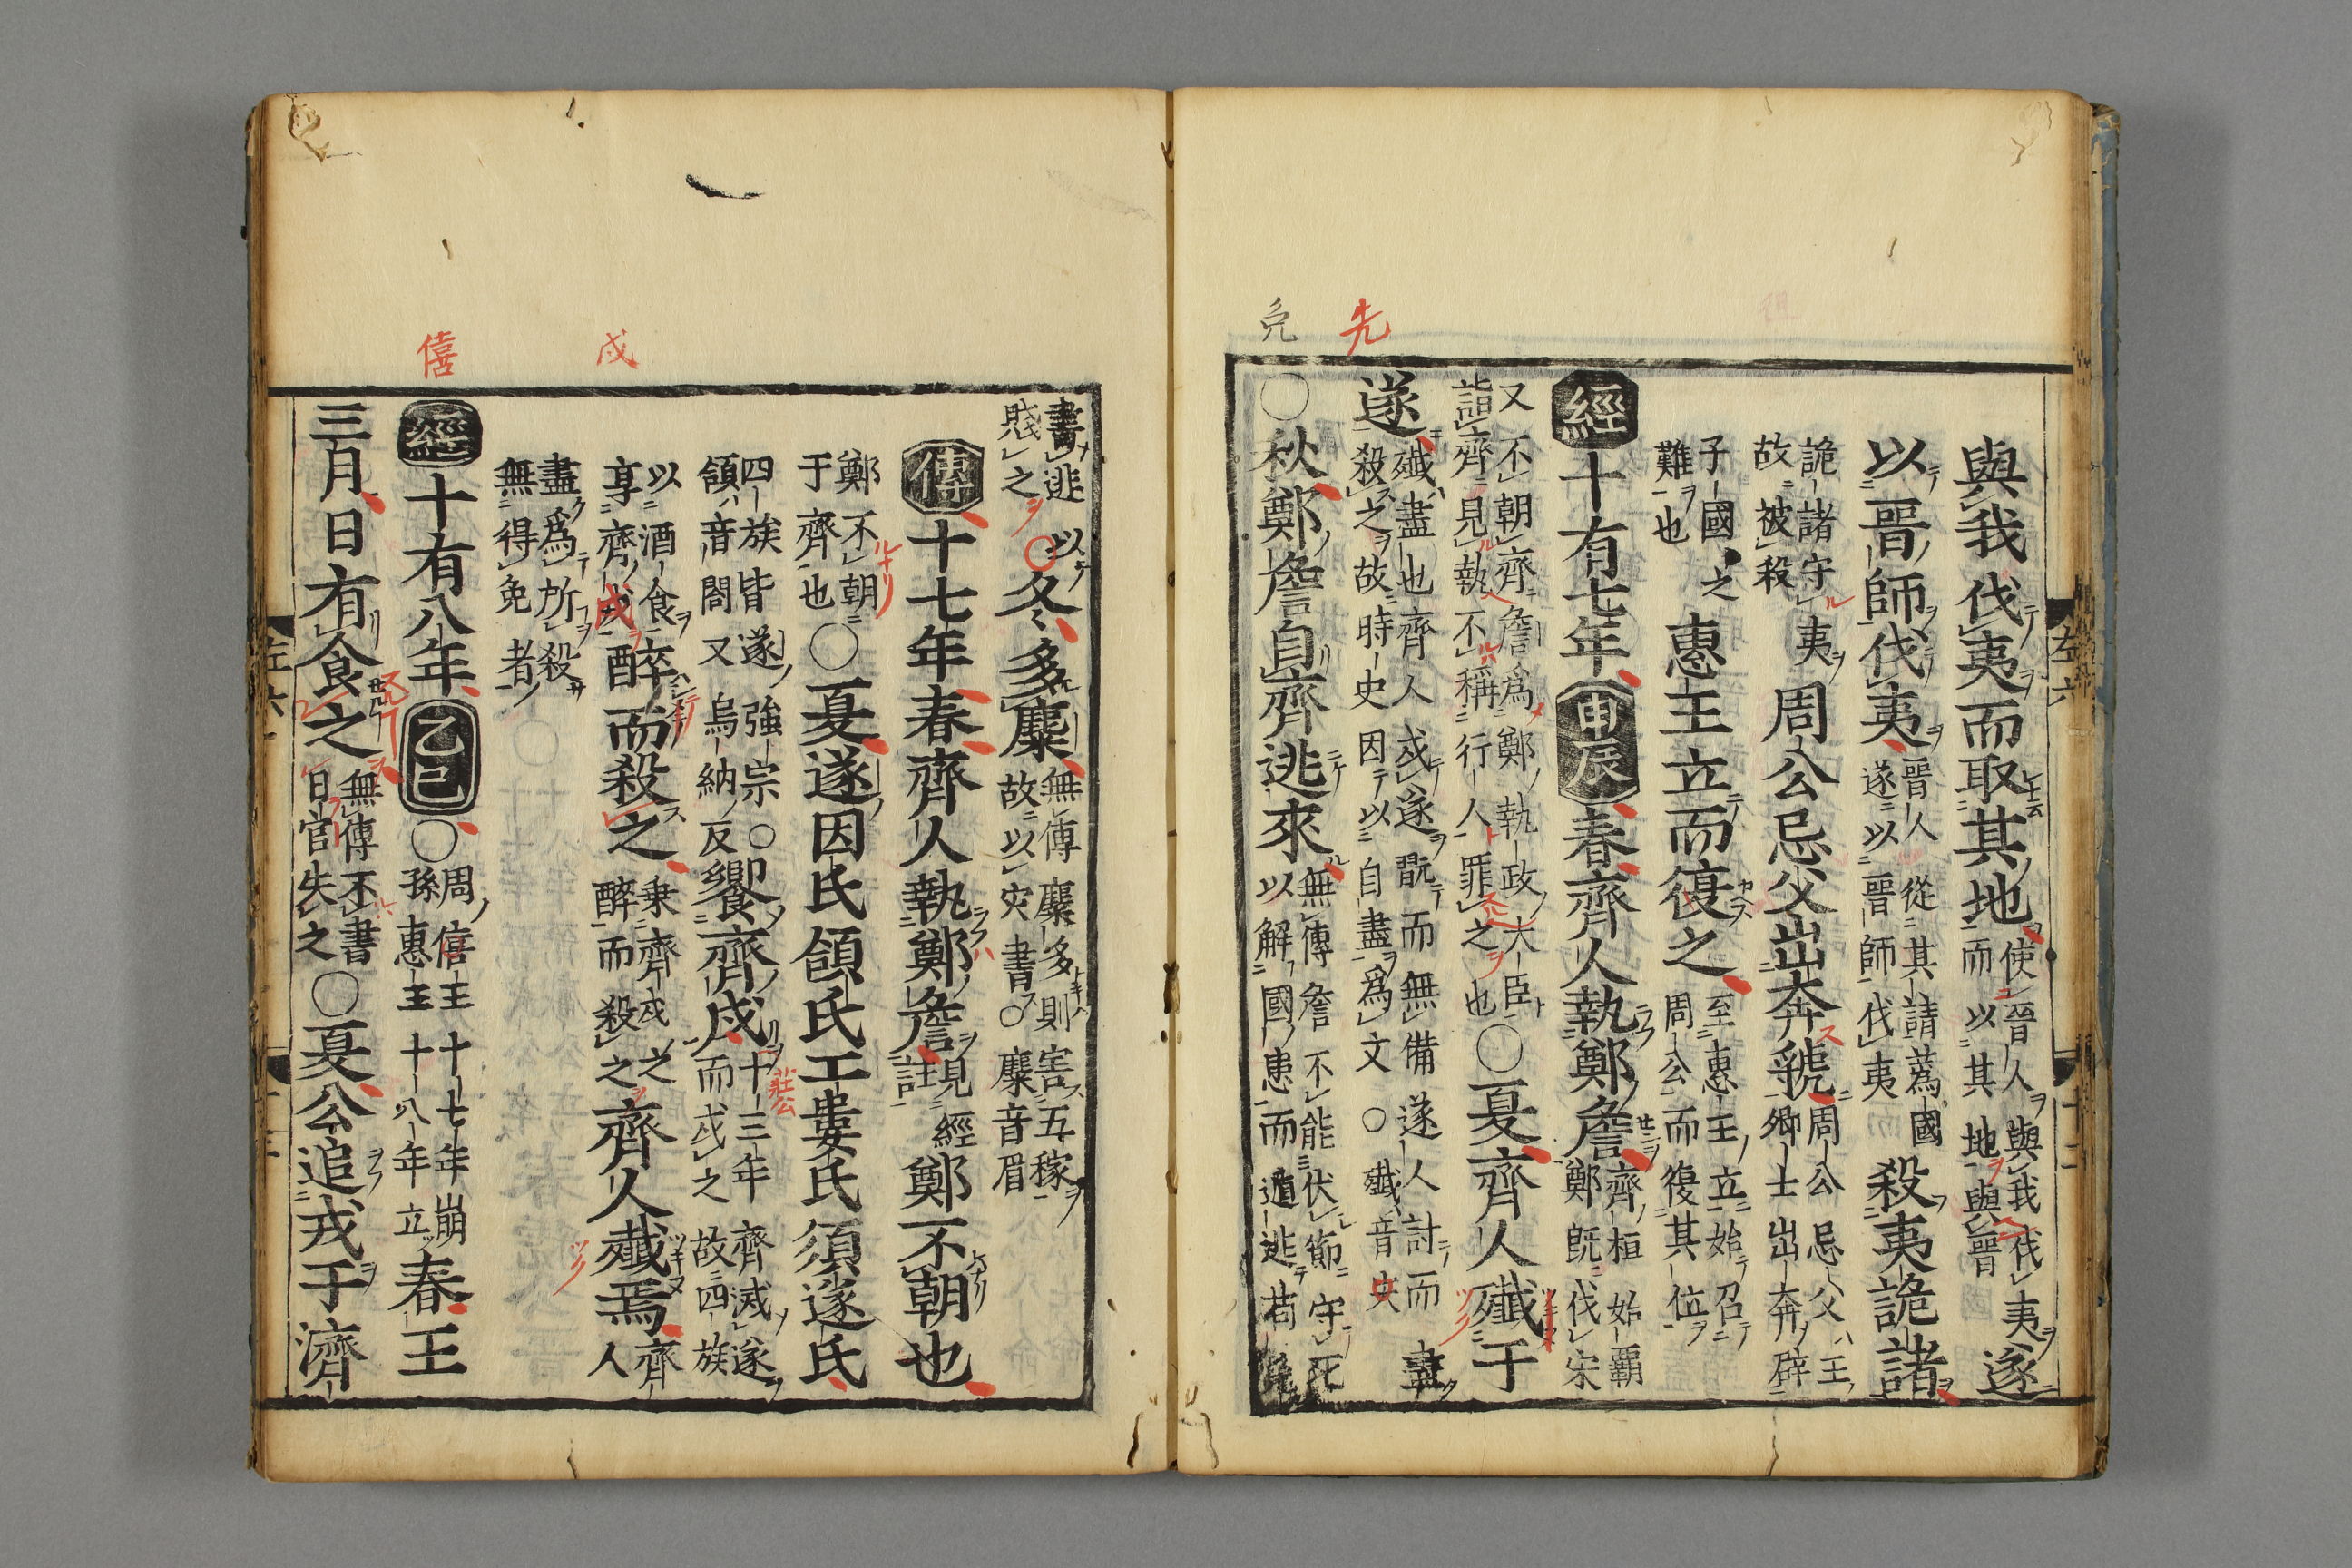 先
免
與我伐夷而取其地使晉人與我伐夷而以其地與晉遂
以晉師伐夷晉人從其請爲國遂以晉師伐夷殺夷詭諸
詭諸守夷故被殺周公忌父出奔虢周公忌父王卿士出奔辟
子國之難也惠王立而復之至惠王立始召周公而復其位
經十有七年甲辰春齊人執鄭詹齊桓始霸鄭既伐宋
又不朝齊詹爲鄭執政大臣詣齊見執不稱行人罪之也○夏齊人殲于
遂殲盡也齊人戍遂翫而無備遂人討而盡殺之故時史因以自盡爲文○殲音尖
○秋鄭詹自齊逃來無傳詹不能伏節守死以解國患而遁逃苟
左六
戍
僖
書逃以賤之○冬多麋無傳麋多則害五稼故以災書○麋音眉
傳十七年春齊人執鄭詹見經註鄭不朝也
鄭不朝于齊也○夏遂因氏頜氏工婁氏須遂氏
四族皆遂強宗○頜音閤又烏納反饗齊戍十三年齊滅遂而戍之故四族
莊公
以酒食享齊戍醉而殺之乗齊戍之醉而殺之齊人殲焉齊人
盡爲所殺無得免者
經十有八年乙巳○周僖王十七年崩孫惠王十八年立春王
三月日有食之無傳不書日官失之○夏公追戎于濟
左六